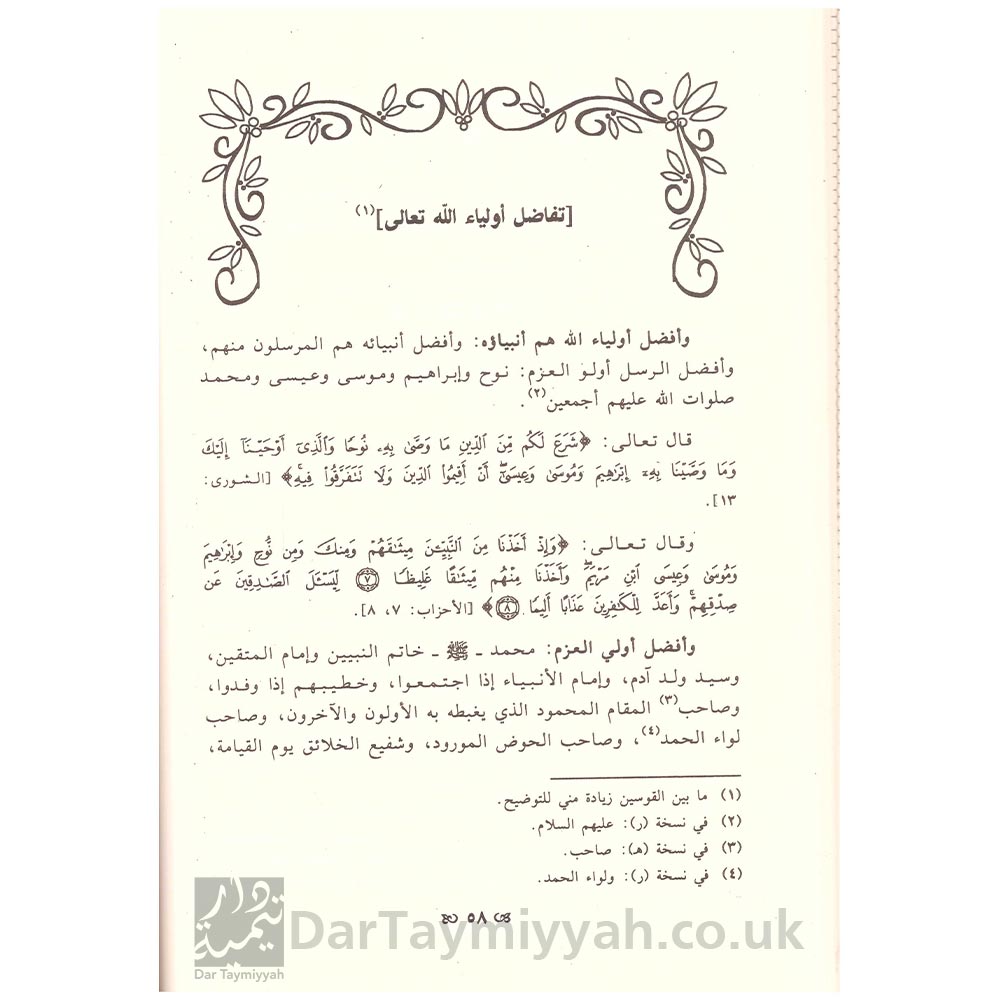 [تفاضل أولياء الله تعالى](١)
وأفضل أولياء الله هم أنبياؤه: وأفضل أنبيائه هم المرسلون منهم،
وأفضل الرسل أولو العزم: نوح وإبراهيم وموسى وعيسى ومحمد
صلوات الله عليهم أجمعين(٢).
قال تعالى: ﴿شَرَعَ لَكُم مِّنَ الدِّينِ مَا وَصَّىٰ بِهِۦ نُوحًا وَالَّذِىٓ أَوْحَيْنَآ إِلَيْكَ
وَمَا وَصَّيْنَا بِهِۦٓ إِبْرَٰهِيمَ وَمُوسَىٰ وَعِيسَىٰٓۖ أَنْ أَقِيمُوا۟ الدِّينَ وَلَا نَتَفَرَّقُوا۟ فِيهِۚ﴾ [الشورى:
١٣].
وقال تعالى: ﴿وَإِذْ أَخَذْنَا مِنَ النَّبِيِّـۧنَ مِيثَـٰقَهُمْ وَمِنكَ وَمِن نُّوحٍ وَإِبْرَٰهِيمَ
وَمُوسَىٰ وَعِيسَى ابْنِ مَرْيَمَۖ وَأَخَذْنَا مِنْهُم مِّيثَـٰقًا غَلِيظًا ۝٧ لِّيَسْـَٔلَ الصَّـٰدِقِينَ عَن
صِدْقِهِمْۚ وَأَعَدَّ لِلْكَـٰفِرِينَ عَذَابًا أَلِيمًا ۝٨﴾ [الأحزاب: ٧، ٨].
وأفضل أولي العزم: محمد ـ ﷺ ـ خاتم النبيين وإمام المتقين،
وسيد ولد آدم، وإمام الأنبياء إذا اجتمعوا، وخطيبهم إذا وفدوا،
وصاحب(٣) المقام المحمود الذي يغبطه به الأولون والآخرون، وصاحب
لواء الحمد(٤)، وصاحب الحوض المورود، وشفيع الخلائق يوم القيامة،
(١) ما بين القوسين زيادة مني للتوضيح.
(٢) في نسخة (ر): عليهم السلام.
(٣) في نسخة (هـ): صاحب.
(٤) في نسخة (ر): ولواء الحمد.
٥٨
دار تيمية
Dar Taymiyyah
DarTaymiyyah.co.uk